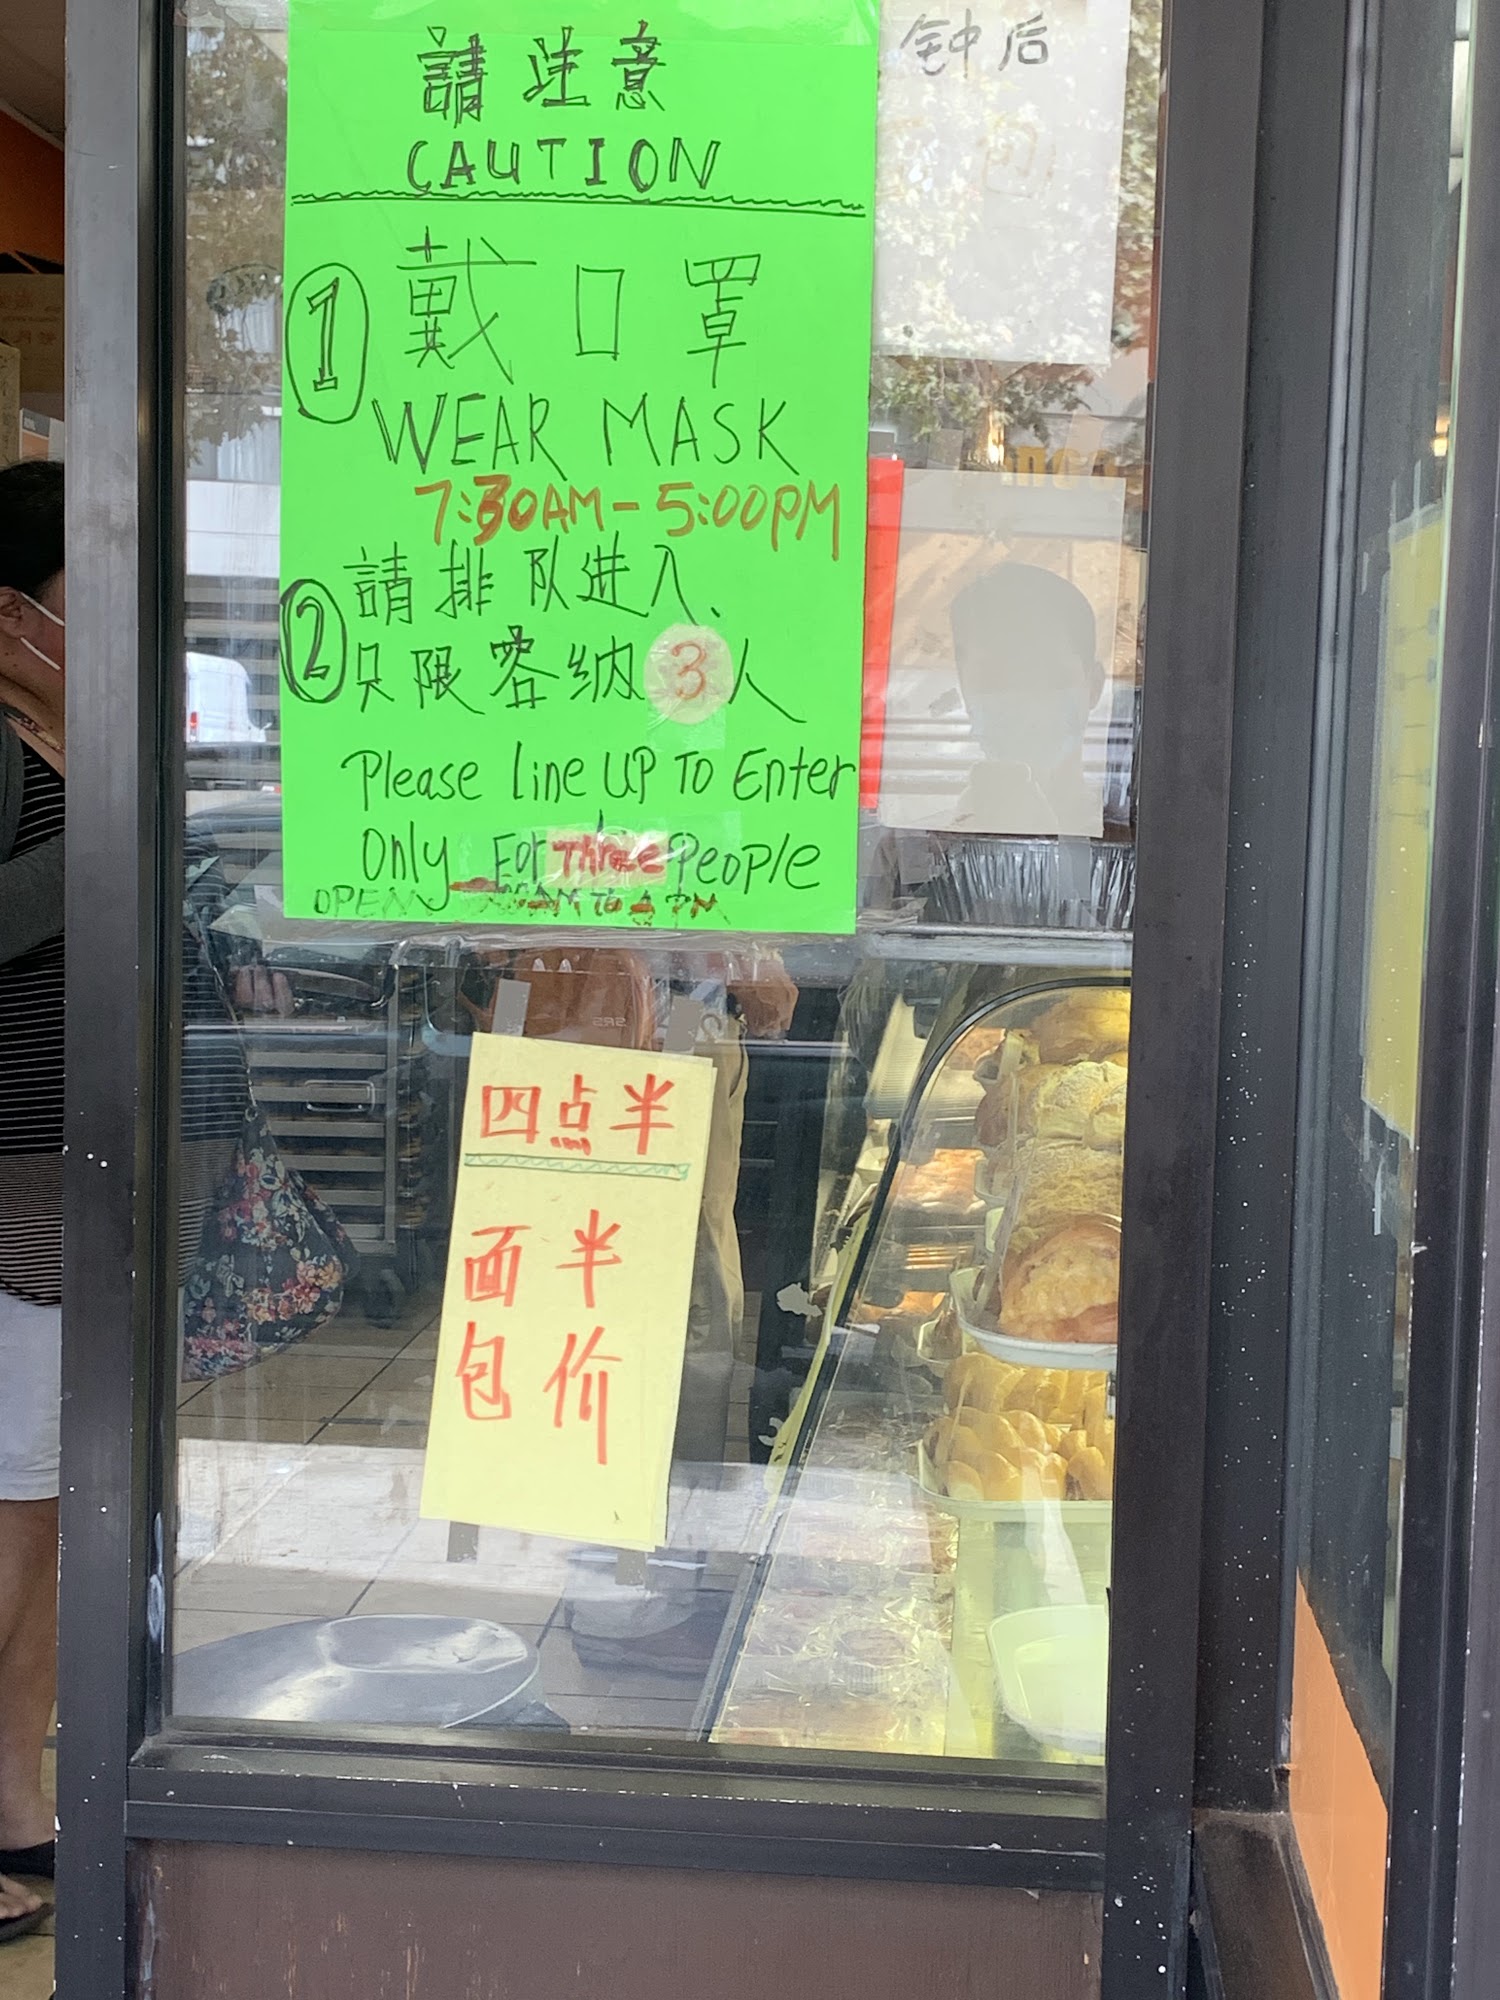 請注意
CAUTION
1 戴口罩
WEAR MASK
7:30AM-5:00PM
2 請排队進入、
只限容纳3人
Please Line UP To Enter
Only For Three People
OPEN
钟后
包
四点半
半价
面包